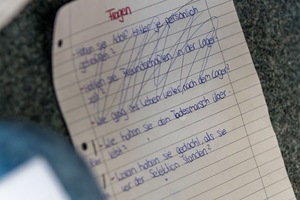 Fragen
- Haben sie Adolf Hitler je persönlich
getroffen?
- Haben sie Freundschaften in der Lager
- Wie ging ihr Leben weiter, nach dem Lager?
- Wie haben sie den Todesmarsch über
lebt?
- Woran haben sie gedacht, als sie
vor der Selektion standen?